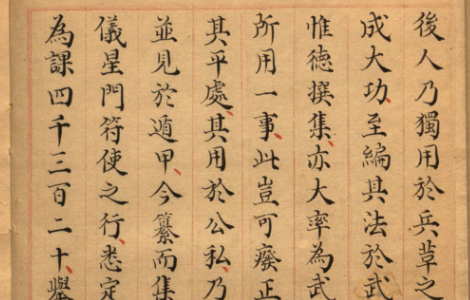 後人乃獨用於兵草之
成大功至編其法於武
惟德撰集亦大率為武
所用一事此豈可癈正
其平處其用於公私乃
並見於遁甲今纂而集
儀星門符使之行悉定
為課四千三百二十舉